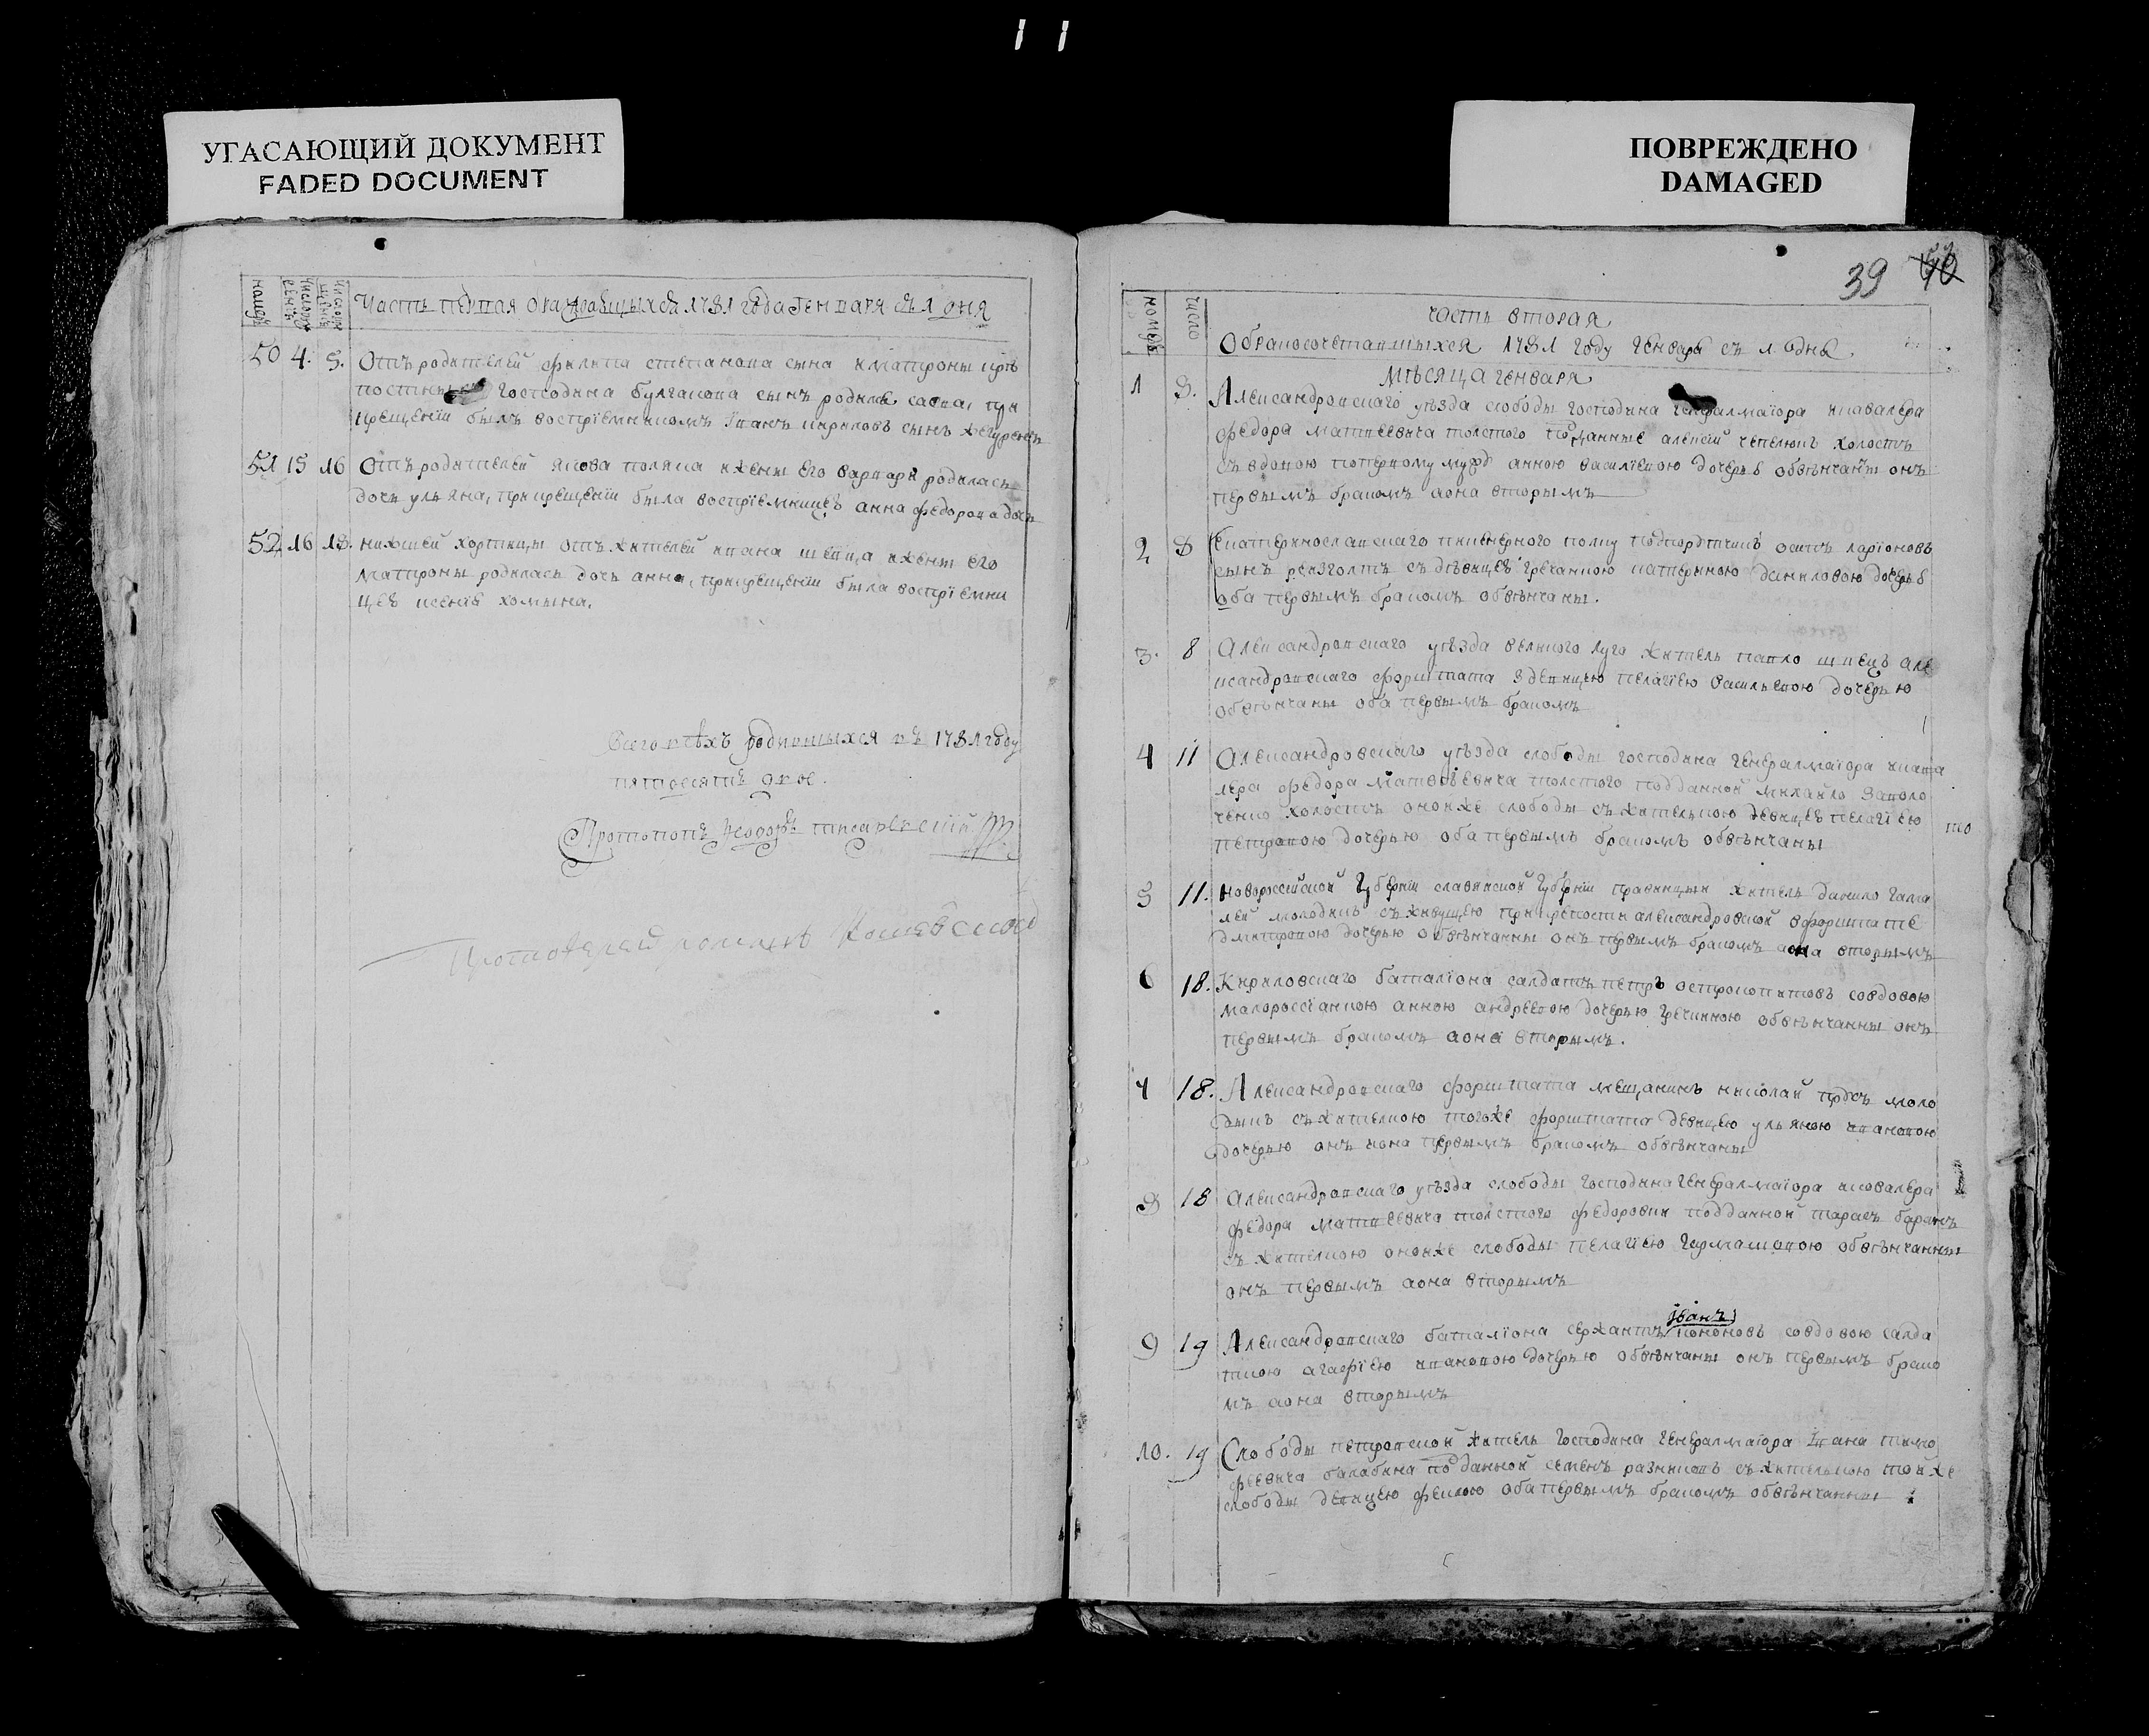 11
УГАСАЮЩИЙ ДОКУМЕНТ
FADED DOCUMENT
ПОВРЕЖДЕНО
DAMAGED
39
номеръ
число
Часть первая о раждающихся 1781 года Генваря съ 1 дня
50 4. 5. Отъ родителей филипа степанова сына и матроны крѣ
господина булгакова сынъ родился савва, при
крещенїи былъ воспрїемникомъ Їванъ кириловъ сынъ
51 15 16 Отъ родителей якова поляка и жены его варвары родилась
дочь ульяна, при крещенїи была воспрїемницею анна федорова дочь
52 16 18. нижшей хортицы отъ жителей ивана швеца и жены его
матроны родилась дочь анна, при крещенїи была воспрїемни
цеѣ ксенїя хомына.
Всего всѣхъ родившихся въ 1781 году
пятдесятъ двое.
Протопопъ Ѳеодоръ
часть вторая
О бракосочетавшихся 1781 году Генваря съ 1 дня
номеръ
число
Мѣсяца генваря
1 8. Александровскаго уѣзда слободы господина генералмаїора и кавалера
федора матвеевича толстого подданные алексїй чепелюкъ холостъ
съ вдовою по первому мужѣ анною василїевою дочерью обвѣнчаны онъ
первымъ бракомъ а она вторымъ
2 8 Екатеринославскаго пикинерного полку осипъ ларїоновъ
сынъ съ дѣвицеѣ гречанкою катериною даниловою дочерью
оба первымъ бракомъ обвѣнчаны.
3. 8 Александровскаго уѣзда великого луга житель павло швецъ але
ксандровскаго форштата з девицею пелагїею васильевою дочерью
обвѣнчаны оба первымъ бракомъ
4 11 Александровскаго уѣзда слободы господина генералмаїора и кава
лера федора матвѣевича толстого подданной михайло заполо
ченко холостъ оноиже слободы съ жителькою девицеѣ пелагїею
петровою дочерью оба первымъ бракомъ обвѣнчаны
то
5 11. Новороссїйской губернїи славянской губернїи провинцыи житель данило гама
лей молодикъ съ живущею при крепости александровской в форштате
дмитровою дочерью обвѣнчанны онъ первымъ бракомъ а она вторымъ
6 18. Кириловскаго баталїона салдатъ петръ остроколитовъ со вдовою
малороссїанкою анною андреевою дочерью обвѣнчанны онъ
первымъ бракомъ а она вторымъ.
7 18. Александровскаго форштата мещанинъ николай моло
дикъ съ жителкою тогоже форштата девицею ульяною ивановою
дочерью онъ и она первымъ бракомъ обвѣнчаны
8 18 Александровскаго уѣзда слободы господина генералмаїора и ковалера
федора матвеевича толстого федоровки подданной тарасъ баранъ
съ жителкою оноиже слободы пелагїею гармашовою обвѣнчанны
онъ первымъ а она вторымъ
иванъ
9 19 Александровскаго баталїона сержантъ кононовъ со вдовою салда
ткою агафїею ивановою дочерью обвѣнчаны онъ первымъ брако
мъ а она вторымъ
10. 19 Слободы петровской житель господина генералмаїора Ївана тимо
феевича балабина подданной семенъ съ жителькою тойже
слободы девицею феклою оба первымъ бракомъ обвѣнчанны